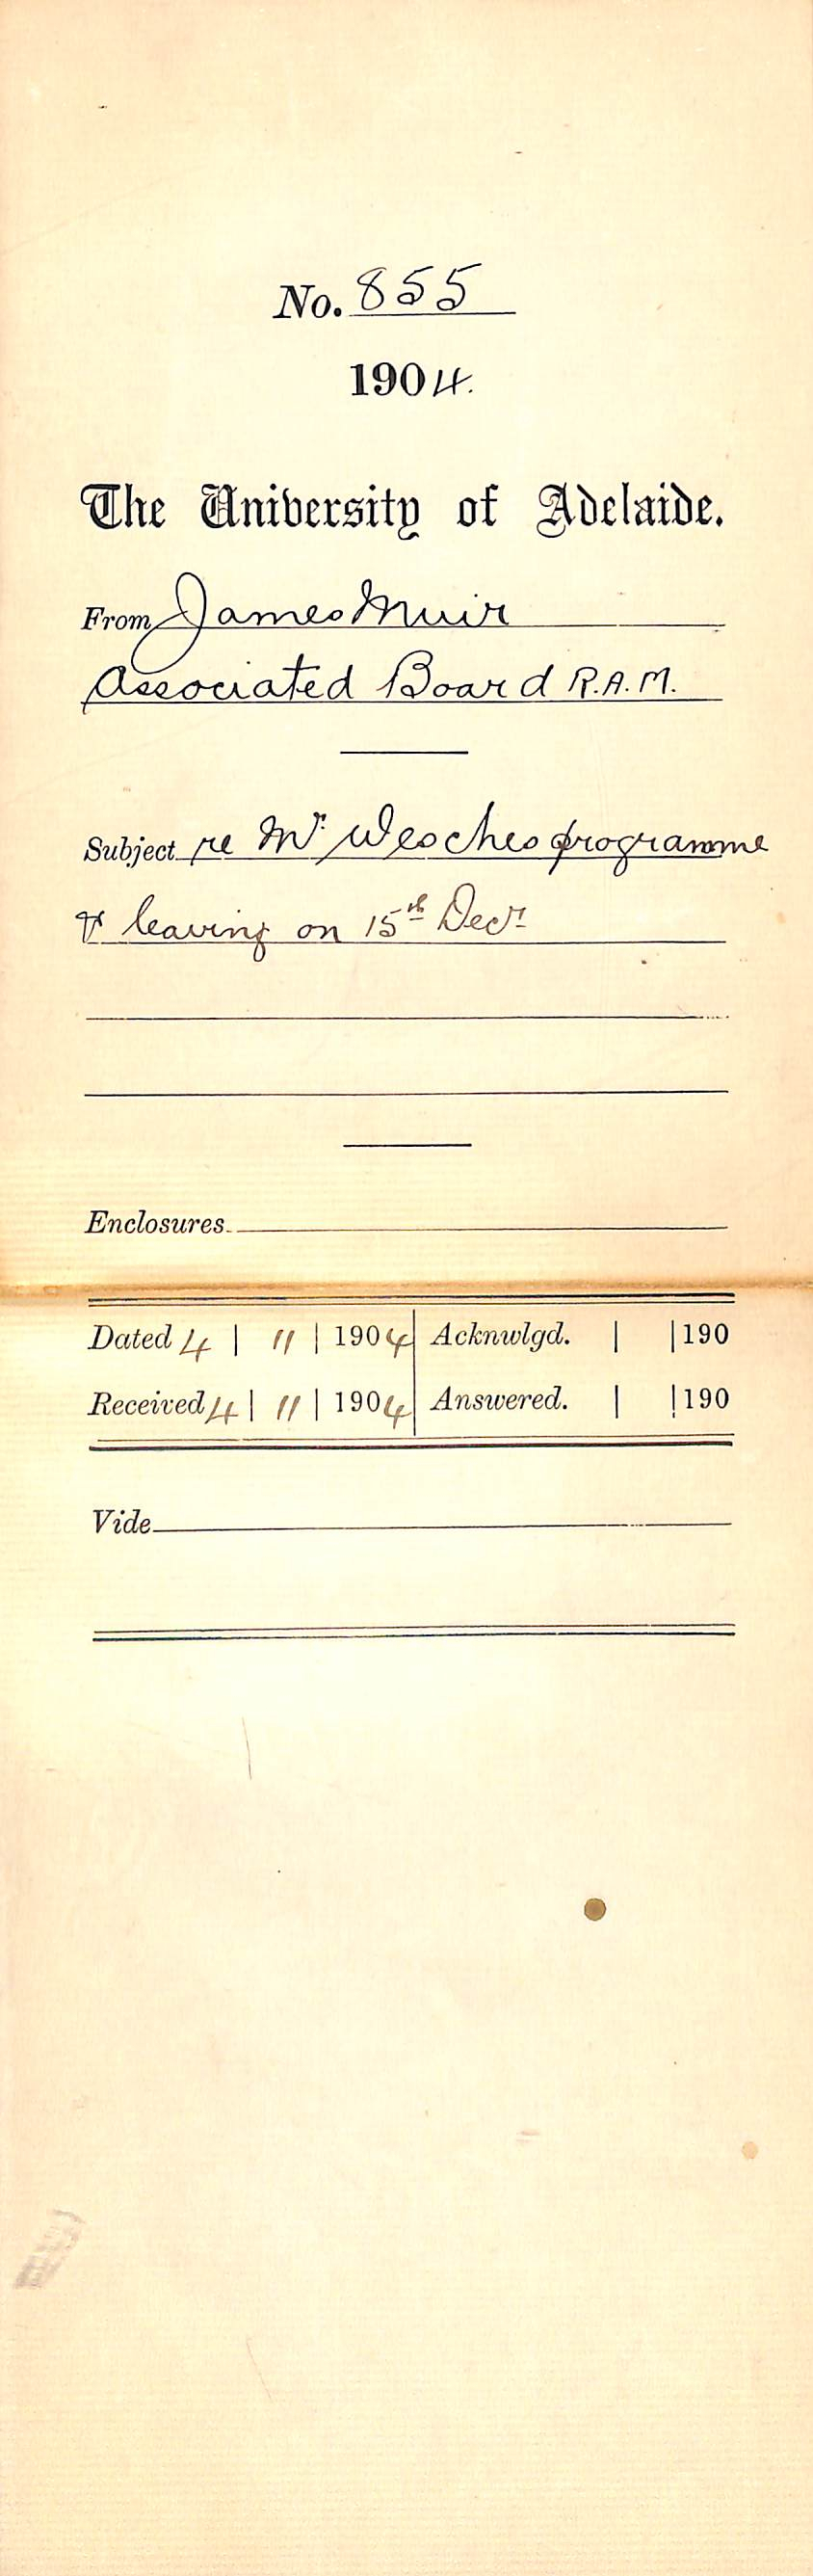 No. 855
1904.
The University of Adelaide.
From James Muir
Associated Board R.A.M.
Subject re Mr. Wesches programme
& leaving on 15th Decr.
Enclosures
Dated 4 | 11 | 1904 Acknwlgd. | | 190
Received 4 | 11 | 1904 Answered. | | 190
Vide